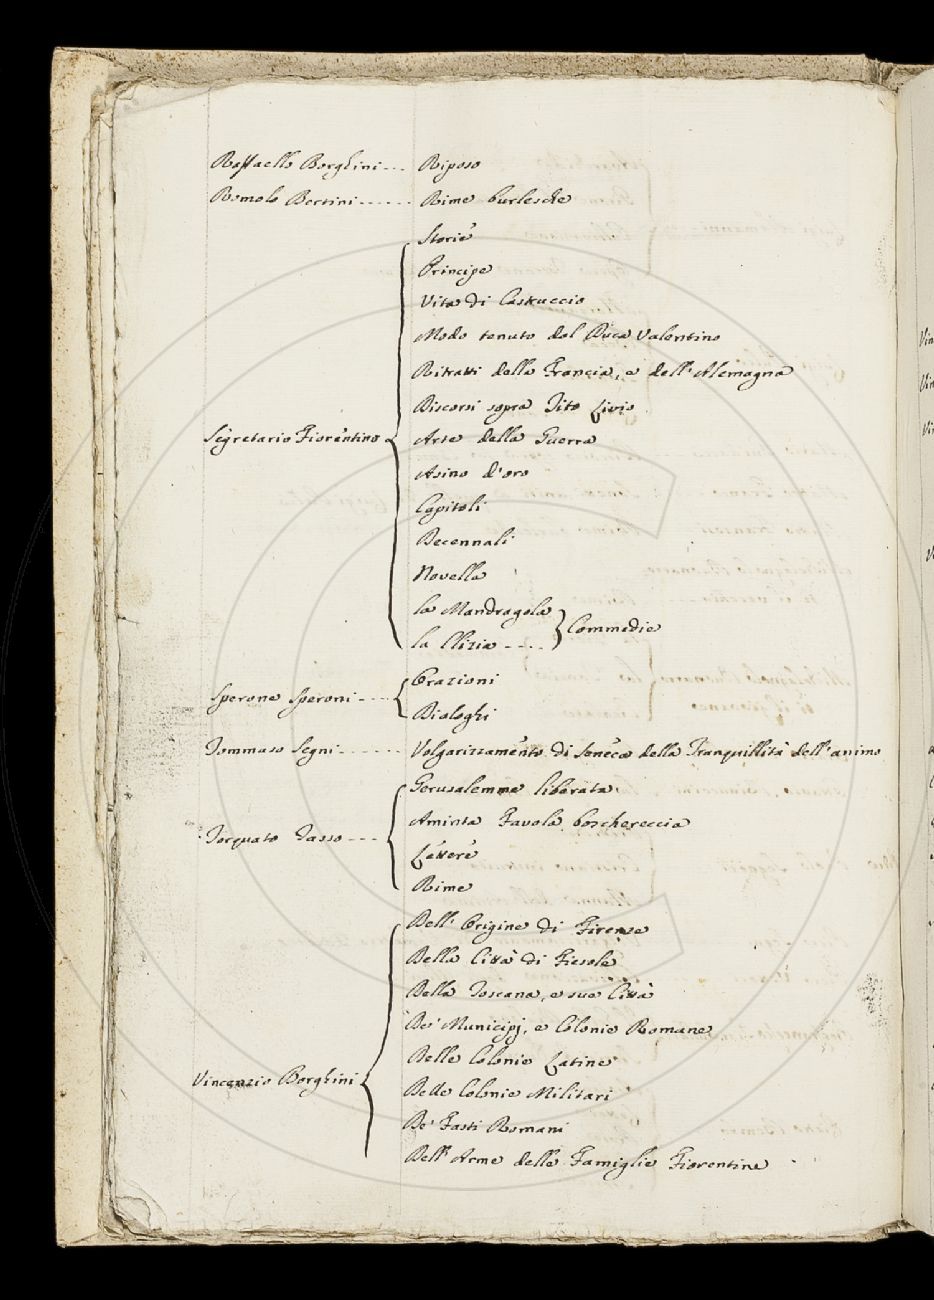 Raffaello Borghini --- Riposo
Romolo Bertini ------ Rime burlesche
Storie
Principe
Vita di Castruccio
Modo tenuto dal Duca Valentino
Ritratti della Francia, e dell'Alemagna
Discorsi sopra Tito Livio
Segretario Fiorentino
Arte della Guerra
Asino d'oro
Capitoli
Decennali
Novella
la Mandragola
Commedie
la Clizia ----
Orazioni
Sperone Speroni ----
Dialoghi
Tommaso Segni ------ Volgarizzamento di Seneca della Tranquillità dell'animo
Gerusalemme liberata
Aminta Favola boschereccia
Torquato Tasso ---
Lettere
Rime
Dell'Origine di Firenze
Della Città di Fiesole
Della Toscana, e sue Città
De' Municipj, e Colonie Romane
Delle Colonie Latine
Vincenzio Borghini
Delle Colonie Militari
De' Fasti Romani
Dell'Arme delle Famiglie Fiorentine